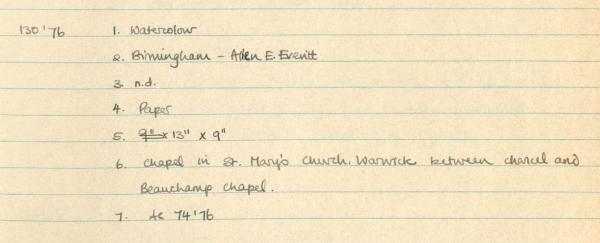 130'76 1. Watercolour
2. Birmingham - Allen E. Everitt
3. n.d.
4. Paper
5. 9" x 13" x 9"
6. Chapel in St. Mary's Church, Warwick between chancel and
Beauchamp Chapel.
7. As 74'76